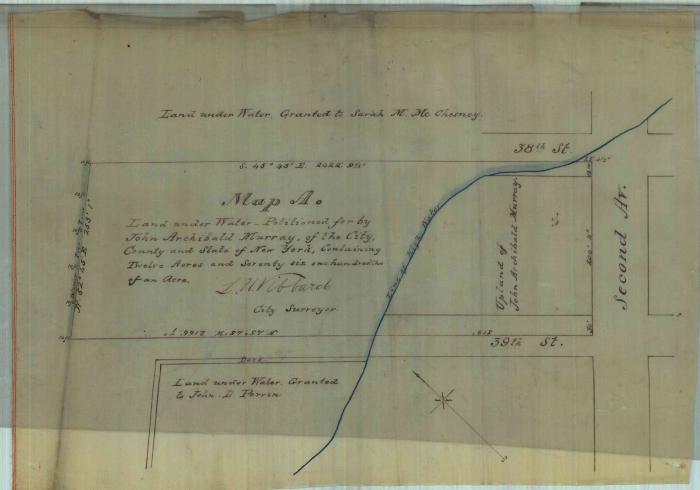 Land under Water, Granted to Sarah M. Mc Chesney.
38th St.
S. 45° 45' E. 2422
Map A.
Land under Water — Petitioned for by
John Archibald Murray, of the City,
County and State of New York, Containing
Twelve Acres and Seventy six one hundredths
of an Acre.
City Surveyor
Line of High Water
Upland of
John Archibald Murray.
Second Av.
39th St.
Dock
Land under Water, Granted
to John. D. Perrin